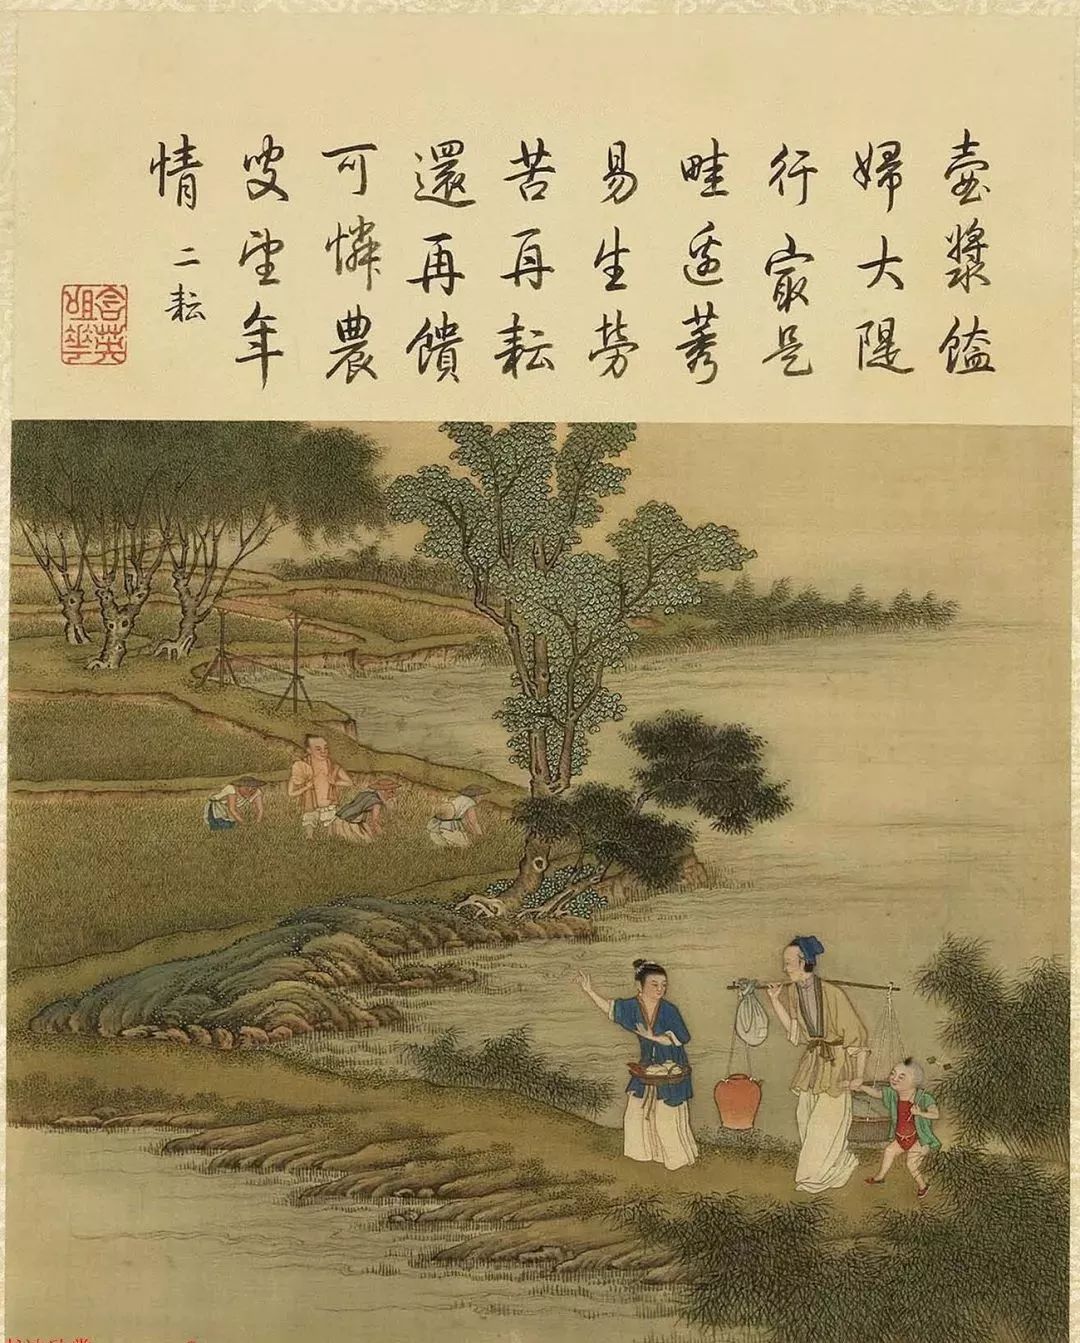 壺漿饁
婦大隄
行最是
畦邊莠
易生勞
苦再耘
還再饋
可憐農
叟望年
情 二耘
含英咀華